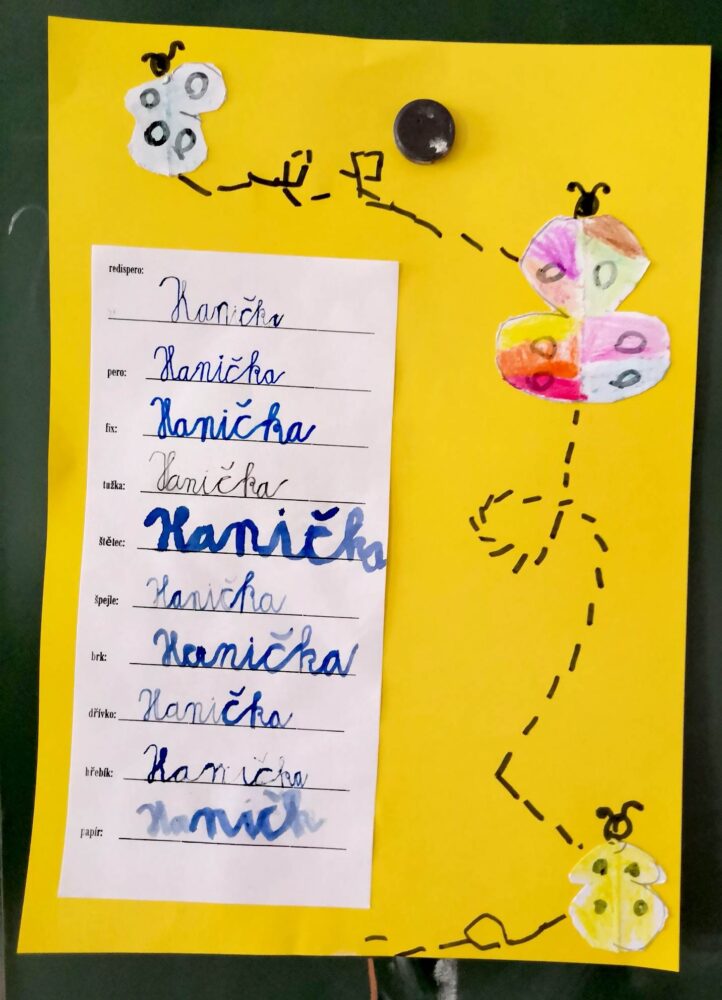 redispero: Hanička
pero: Hanička
fix: Hanička
tužka: Hanička
štětec: Hanička
špejle: Hanička
brk: Hanička
dřívko: Hanička
hřebík: Hanička
papír: Haničk